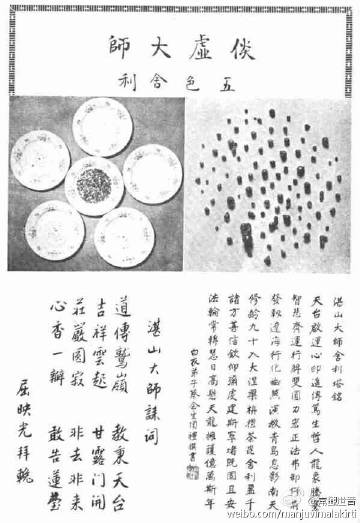 倓虛大師
五色舍利
湛山大師舍利塔銘
天台啟運心印遙傳篤生哲人龍象騰
智慧齊運行解雙圓力宏正法弗卸仔肩
發軔遼海行化幽燕演教青島息影南天
修齡九十入大涅槃栴檀荼毘舍利盈千
諸方善信欽仰彌虔建斯窣堵既固且安
法輪常轉慧日高懸天龍擁護億萬斯年
白衣弟子蔡念生頂禮撰書
湛山大師誄詞
道傳鷲嶺 教秉天台
吉祥雲起 甘露門開
莊嚴圓寂 非去非來
心香一瓣 敢告蓮臺
屈映光拜輓
weibo.com/manjuvimalakirti